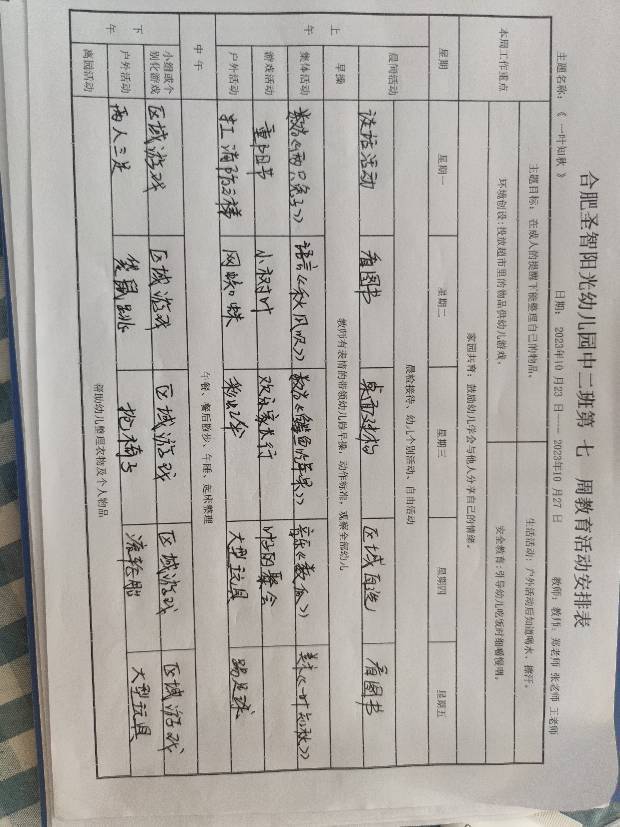 合肥圣智阳光幼儿园中二班第 七 周教育活动安排表
主题名称：《 一叶知秋 》 日期： 2023年10月23 日—— 2023年10月27 日 教师：教师：郑老师 张老师 王老师
本周工作重点
主题目标：在成人的提醒下能整理自己的物品。
生活活动：户外活动后知道喝水、擦汗。
环境创设：投放超市里的物品供幼儿游戏。
安全教育：引导幼儿吃饭时细嚼慢咽。
家园共育：鼓励幼儿学会与他人分享自己的情绪。
星期 星期一 星期二 星期三 星期四 星期五
上午
晨检接待、幼儿个别活动、自由活动
晨间活动 谈话活动 看图书 桌面建构 区域 看图书
早操 教师有表情的带领幼儿做早操，动作标准，观察全部幼儿
集体活动 数活《两只兔子》 语言《秋风吹》 数活《鳄鱼的苹果》 音乐《 》 美术《一叶知秋》
游戏活动 重阳节 小树叶 欢 行 聚会
户外活动 消防云梯 网 大型玩具 踢足球
中午 午餐、餐后散步、午睡、起床整理
下午
小组或个别化游戏 区域游戏 区域游戏 区域游戏 区域游戏 区域游戏
户外活动 两人三足 袋鼠跳 抢椅子 大型玩具
离园活动 帮助幼儿整理衣物及个人物品